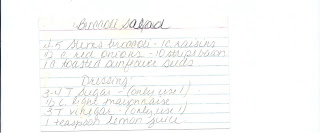 Broccoli Salad
4-5 Stems broccoli - 1 c. raisins
1/2 c. red onions - 10 strips bacon
1 c toasted sunflower seeds
Dressing:
3-4 T sugar - (only use 1)
1/2 c. light mayonnaise
3 T vinegar (only use 1)
1 teaspoon lemon juice